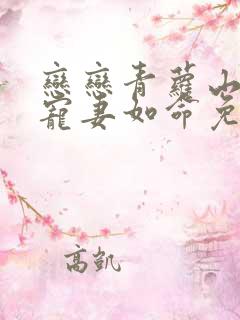 戀戀青蘿山
寵妻如命免
高凱